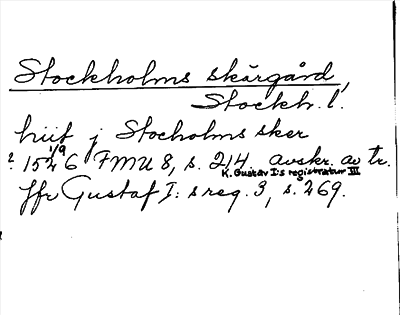 Stockholms skärgård,
Stockh. l.
huit j Stocholms sker
? 1526 1/9 FMU 8, s. 214. avskr. av tr.
K. Gustav I:s registratur III
Jfr Gustaf I:s reg. 3, s. 269.